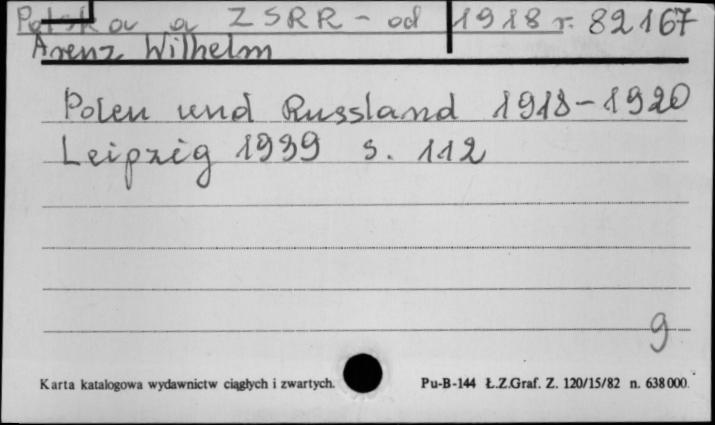 Polska a ZSRR - od 1918 r. 82167
Arenz Wilhelm
Polen und Russland 1918-1920
Leipzig 1939 s. 112
9
Karta katalogowa wydawnictw ciągłych i zwartych.
Pu-B-144 Ł.Z.Graf. Z. 120/15/82 n. 638000.